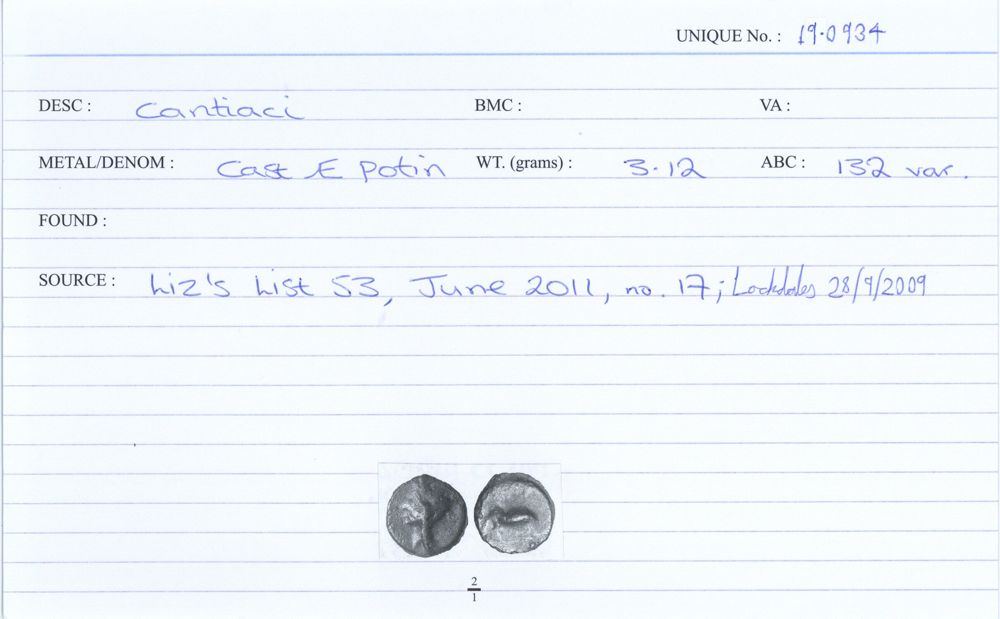 UNIQUE No. : 19.0934
DESC : Cantiaci BMC : VA :
METAL/DENOM : Cast Æ Potin WT. (grams) : 3.12 ABC : 132 var.
FOUND :
SOURCE : Liz's List 53, June 2011, no. 17; Lockdales 28/9/2009
2
1